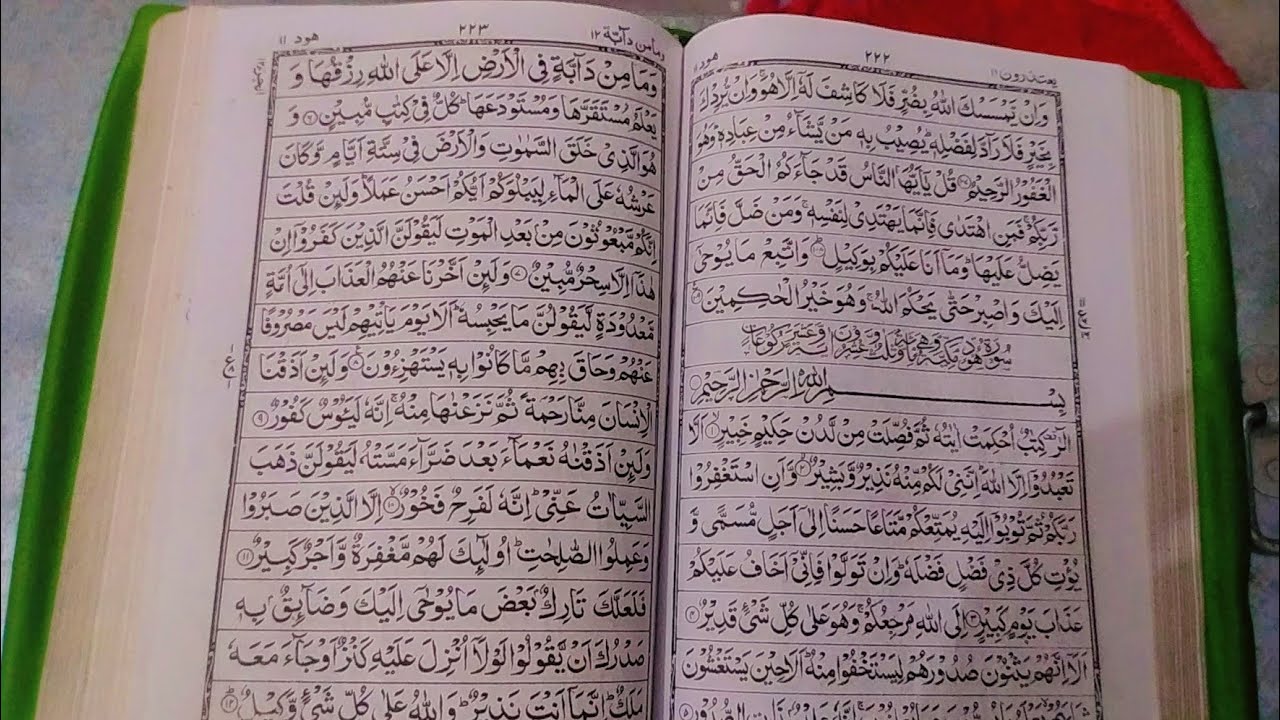 يعتذرون ١١
٢٢٢
هود
وَاِنْ يَّمْسَسْكَ اللّٰهُ بِضُرٍّ فَلَا كَاشِفَ لَهٗۤ اِلَّا هُوَ ۚ وَاِنْ يُّرِدْكَ
بِخَيْرٍ فَلَا رَآدَّ لِفَضْلِهٖ ؕ يُصِيْبُ بِهٖ مَنْ يَّشَآءُ مِنْ عِبَادِهٖ ؕ وَهُوَ
الْغَفُوْرُ الرَّحِيْمُ ﴿۱۰۷﴾ قُلْ يٰۤاَيُّهَا النَّاسُ قَدْ جَآءَكُمُ الْحَقُّ مِنْ
رَّبِّكُمْ ۚ فَمَنِ اهْتَدٰى فَاِنَّمَا يَهْتَدِيْ لِنَفْسِهٖ ۚ وَمَنْ ضَلَّ فَاِنَّمَا
يَضِلُّ عَلَيْهَا ۚ وَمَاۤ اَنَا عَلَيْكُمْ بِوَكِيْلٍ ﴿۱۰۸﴾ وَاتَّبِعْ مَا يُوْحٰۤى
اِلَيْكَ وَاصْبِرْ حَتّٰى يَحْكُمَ اللّٰهُ ۚ وَهُوَ خَيْرُ الْحٰكِمِيْنَ ﴿۱۰۹﴾
بِسْمِ اللّٰهِ الرَّحْمٰنِ الرَّحِيْمِ
الٓرٰ ۫ كِتٰبٌ اُحْكِمَتْ اٰيٰتُهٗ ثُمَّ فُصِّلَتْ مِنْ لَّدُنْ حَكِيْمٍ خَبِيْرٍ ﴿۱﴾ اَلَّا
تَعْبُدُوْۤا اِلَّا اللّٰهَ ؕ اِنَّنِيْ لَكُمْ مِّنْهُ نَذِيْرٌ وَّبَشِيْرٌ ﴿۲﴾ وَّاَنِ اسْتَغْفِرُوْا
رَبَّكُمْ ثُمَّ تُوْبُوْۤا اِلَيْهِ يُمَتِّعْكُمْ مَّتَاعًا حَسَنًا اِلٰۤى اَجَلٍ مُّسَمًّى وَّ
يُؤْتِ كُلَّ ذِيْ فَضْلٍ فَضْلَهٗ ؕ وَاِنْ تَوَلَّوْا فَاِنِّيْۤ اَخَافُ عَلَيْكُمْ
عَذَابَ يَوْمٍ كَبِيْرٍ ﴿۳﴾ اِلَى اللّٰهِ مَرْجِعُكُمْ ۚ وَهُوَ عَلٰى كُلِّ شَيْءٍ قَدِيْرٌ ﴿۴﴾
اَلَاۤ اِنَّهُمْ يَثْنُوْنَ صُدُوْرَهُمْ لِيَسْتَخْفُوْا مِنْهُ ؕ اَلَا حِيْنَ يَسْتَغْشُوْنَ
ومامن دآبة ١٢
٢٢٣
هود ١١
وَمَا مِنْ دَآبَّةٍ فِي الْاَرْضِ اِلَّا عَلَى اللّٰهِ رِزْقُهَا وَ
يَعْلَمُ مُسْتَقَرَّهَا وَمُسْتَوْدَعَهَا ؕ كُلٌّ فِيْ كِتٰبٍ مُّبِيْنٍ ﴿۶﴾ وَ
هُوَ الَّذِيْ خَلَقَ السَّمٰوٰتِ وَالْاَرْضَ فِيْ سِتَّةِ اَيَّامٍ وَّكَانَ
عَرْشُهٗ عَلَى الْمَآءِ لِيَبْلُوَكُمْ اَيُّكُمْ اَحْسَنُ عَمَلًا ؕ وَلَئِنْ قُلْتَ
اِنَّكُمْ مَّبْعُوْثُوْنَ مِنْۢ بَعْدِ الْمَوْتِ لَيَقُوْلَنَّ الَّذِيْنَ كَفَرُوْۤا اِنْ
هٰذَاۤ اِلَّا سِحْرٌ مُّبِيْنٌ ﴿۷﴾ وَلَئِنْ اَخَّرْنَا عَنْهُمُ الْعَذَابَ اِلٰۤى اُمَّةٍ
مَّعْدُوْدَةٍ لَّيَقُوْلُنَّ مَا يَحْبِسُهٗ ؕ اَلَا يَوْمَ يَاْتِيْهِمْ لَيْسَ مَصْرُوْفًا
عَنْهُمْ وَحَاقَ بِهِمْ مَّا كَانُوْا بِهٖ يَسْتَهْزِءُوْنَ ﴿۸﴾ وَلَئِنْ اَذَقْنَا
الْاِنْسَانَ مِنَّا رَحْمَةً ثُمَّ نَزَعْنٰهَا مِنْهُ ۚ اِنَّهٗ لَيَـُٔوْسٌ كَفُوْرٌ ﴿۹﴾
وَلَئِنْ اَذَقْنٰهُ نَعْمَآءَ بَعْدَ ضَرَّآءَ مَسَّتْهُ لَيَقُوْلَنَّ ذَهَبَ
السَّيِّاٰتُ عَنِّيْ ؕ اِنَّهٗ لَفَرِحٌ فَخُوْرٌ ﴿۱۰﴾ اِلَّا الَّذِيْنَ صَبَرُوْا
وَعَمِلُوا الصّٰلِحٰتِ ؕ اُولٰٓئِكَ لَهُمْ مَّغْفِرَةٌ وَّاَجْرٌ كَبِيْرٌ ﴿۱۱﴾
فَلَعَلَّكَ تَارِكٌۢ بَعْضَ مَا يُوْحٰۤى اِلَيْكَ وَضَآئِقٌۢ بِهٖ
صَدْرُكَ اَنْ يَّقُوْلُوْا لَوْلَاۤ اُنْزِلَ عَلَيْهِ كَنْزٌ اَوْ جَآءَ مَعَهٗ
مَلَكٌ ؕ اِنَّمَاۤ اَنْتَ نَذِيْرٌ ؕ وَاللّٰهُ عَلٰى كُلِّ شَيْءٍ وَّكِيْلٌ ﴿۱۲﴾